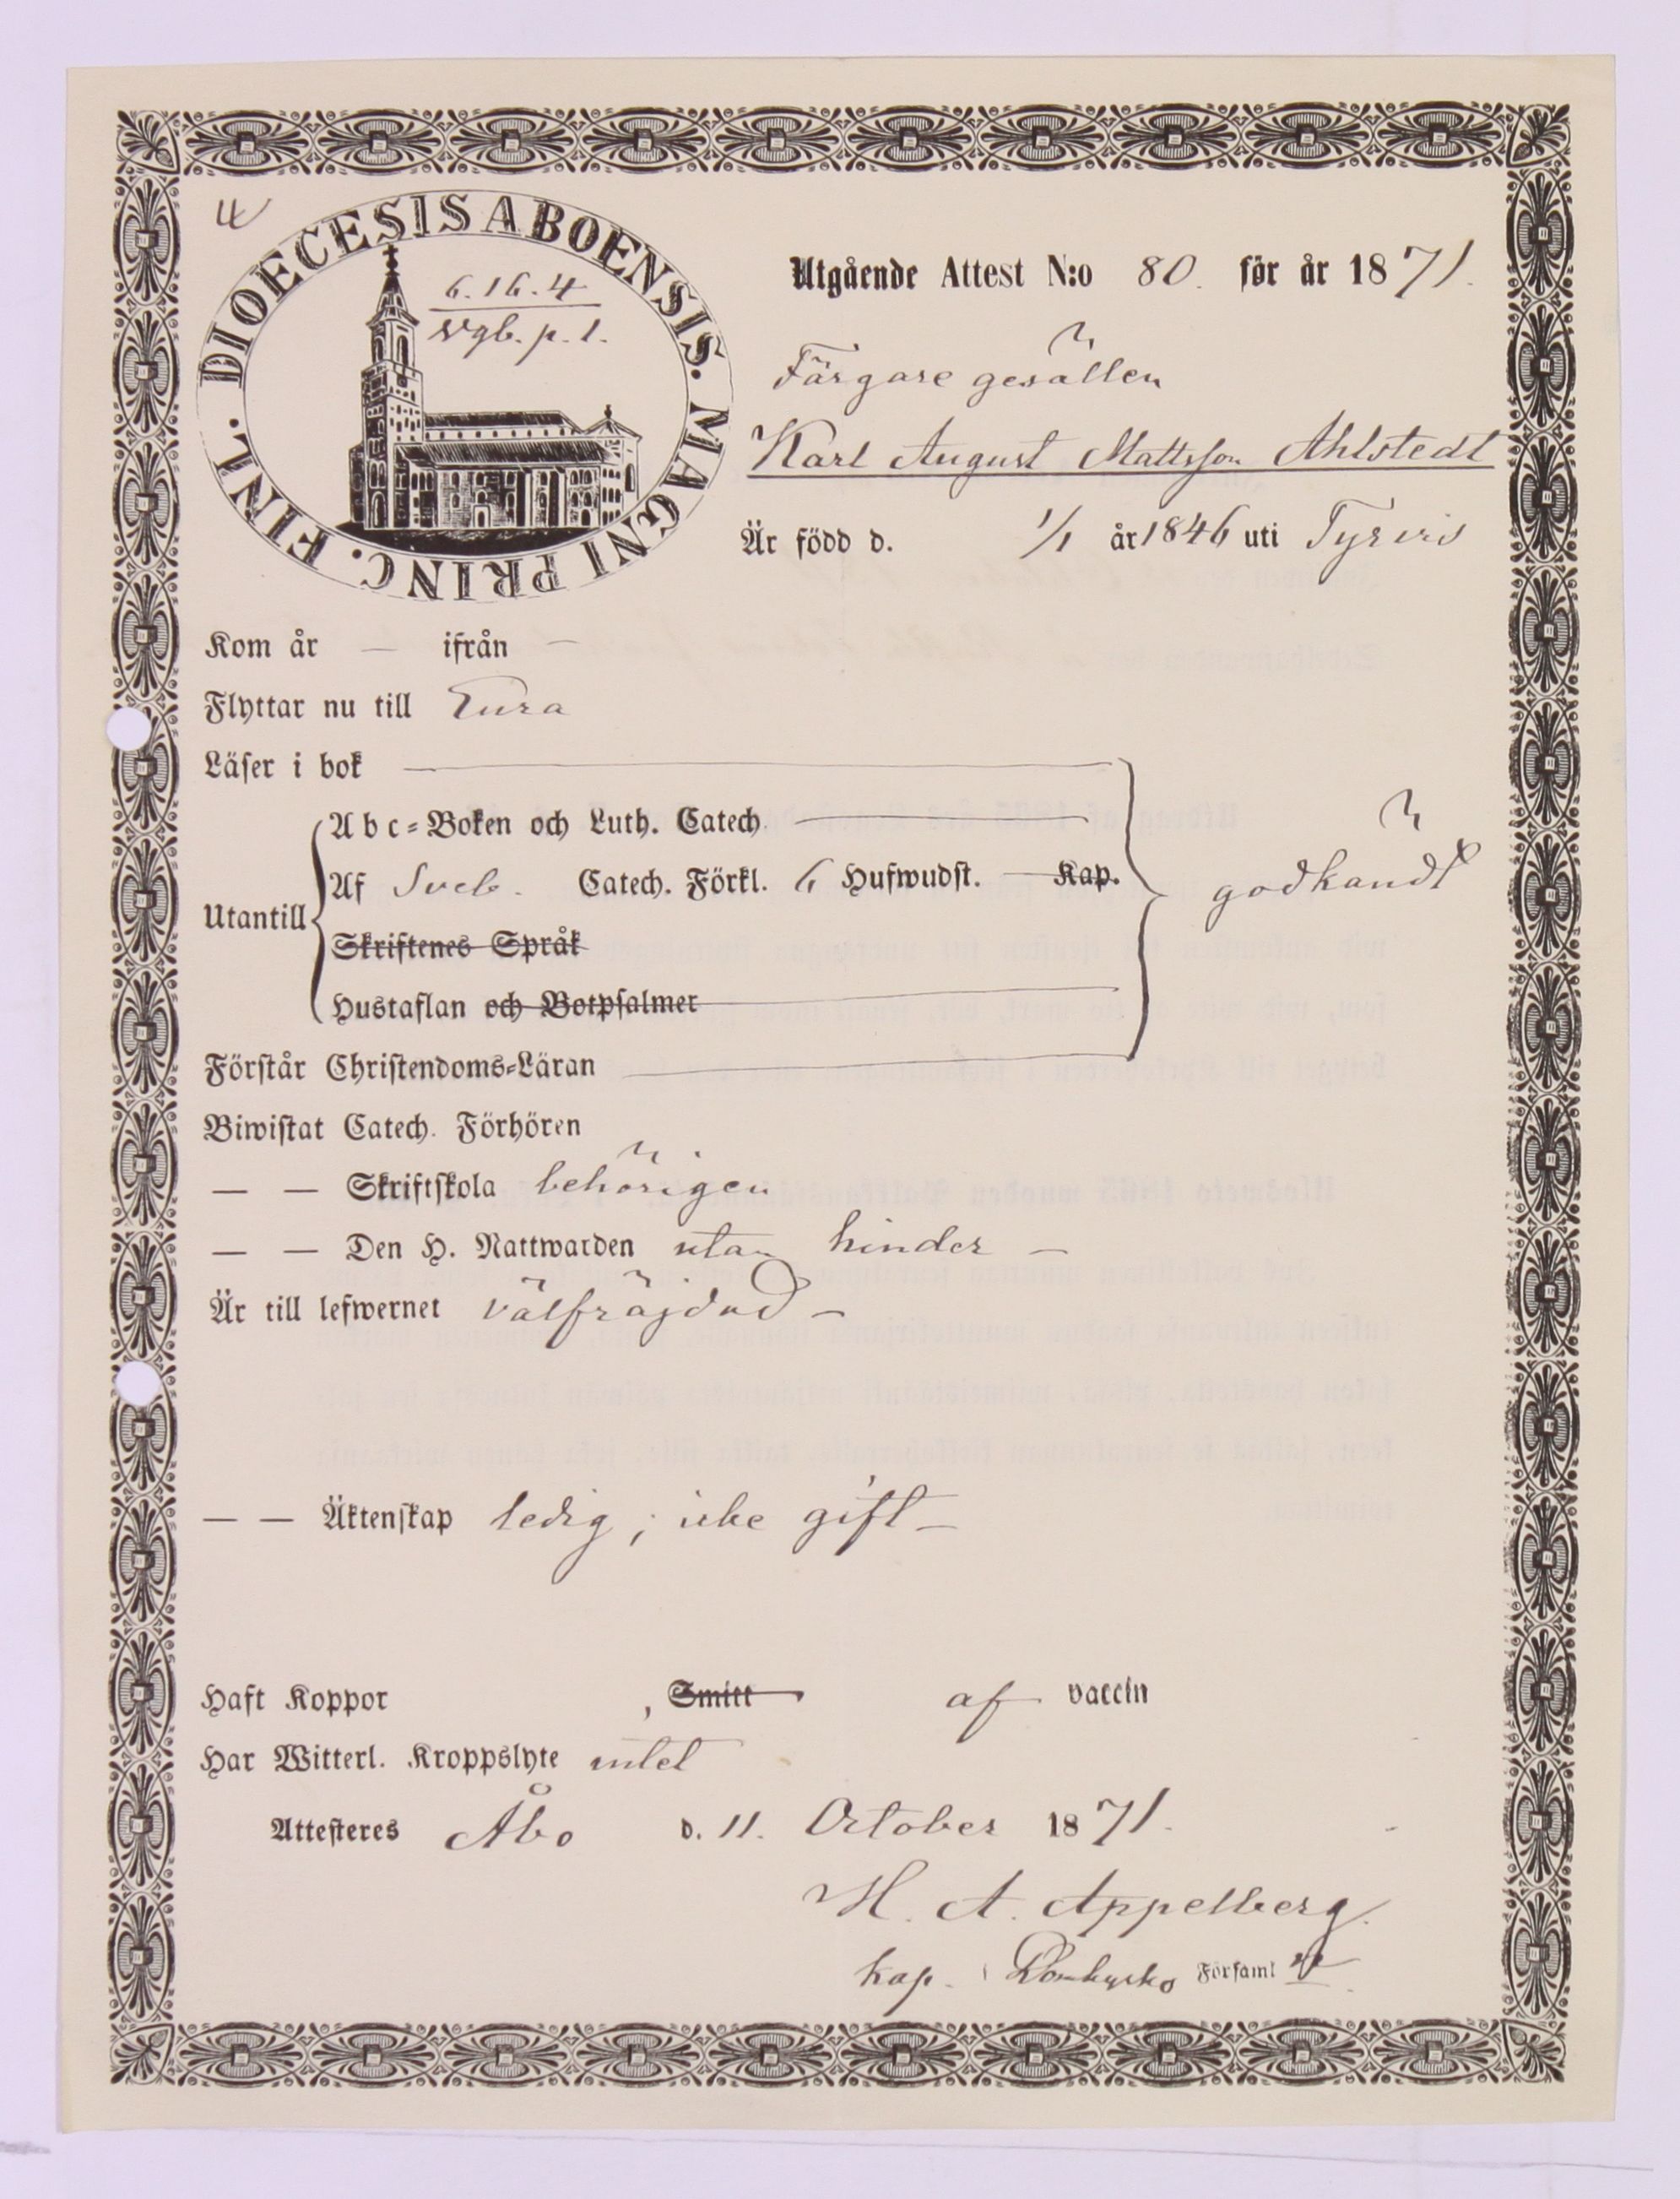 4
DIOECESIS ABOENSIS. MAGNI PRINC. FINL.
6.16.4
vgb. p. 1.
Utgående Attest N:o 80. för år 1871.
Färgare gesällen
Karl August Mattsson Ahlstedt
Är född d. 1/1 år 1846 uti Tyrvis
Kom år — ifrån —
Flyttar nu till Eura
Läser i bok
Abc-Boken och Luth. Catech.
Af Sveb. Catech. Förkl. 6 Hufwudst. — Kap.
godkändt
Utantill
Skriftenes Språk
Hustaflan och Botpsalmer
Förstår Christendoms-Läran
Biwistat Catech. Förhören
— — Skriftskola behörigen
— — Den H. Nattwarden utan hinder —
Är till lefwernet välfräjdad —
— — Äktenskap ledig ; icke gift —
Haft Koppor , Smitt af vaccin
Har Witterl. Kroppslyte intet
Attesteres Åbo d. 11. October 1871.
H. A. Appelberg.
kap. i Domkyrko Församl